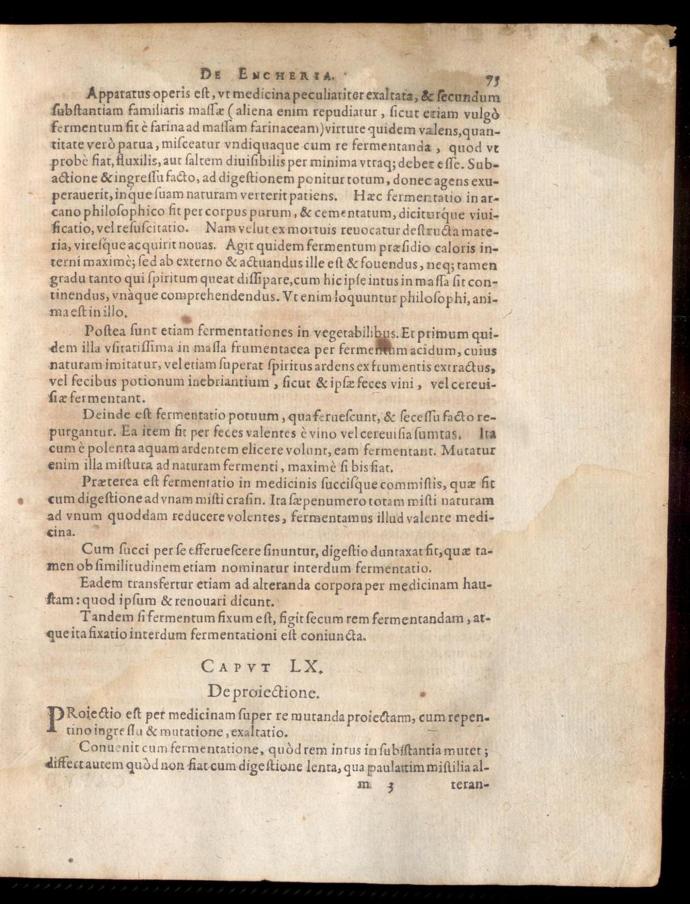 DE ENCHERIA. 75
Apparatus operis est, vt medicina peculiariter exaltata, & secundum
substantiam familiaris massæ (aliena enim repudiatur, sicut etiam vulgò
fermentum fit è farina ad massam farinaceam) virtute quidem valens, quan-
titate verò parua, misceatur vndiquaque cum re fermentanda, quod vt
probè fiat, fluxilis, aut saltem diuisibilis per minima vtraq; debet esse. Sub-
actione & ingressu facto, ad digestionem ponitur totum, donec agens exu-
perauerit, inque suam naturam verterit patiens. Hæc fermentatio in ar-
cano philosophico fit per corpus purum, & cementatum, diciturque viui-
ficatio, vel resuscitatio. Nam velut ex mortuis reuocatur destructa mate-
ria, viresque acquirit nouas. Agit quidem fermentum præsidio caloris in-
terni maximè; sed ab externo & actuandus ille est & fouendus, neq; tamen
gradu tanto qui spiritum queat dissipare, cum hic ipse intus in massa sit con-
tinendus, vnàque comprehendendus. Vt enim loquuntur philosophi, ani-
ma est in illo.
Postea sunt etiam fermentationes in vegetabilibus. Et primum qui-
dem illa vsitatissima in massa frumentacea per fermentum acidum, cuius
naturam imitatur, vel etiam superat spiritus ardens ex frumentis extractus,
vel fecibus potionum inebriantium, sicut & ipsæ feces vini, vel cereui-
siæ fermentant.
Deinde est fermentatio potuum, qua feruescunt, & secessu facto re-
purgantur. Ea item fit per feces valentes è vino vel cereuisia sumtas. Ita
cum è polenta aquam ardentem elicere volunt, eam fermentant. Mutatur
enim illa mistura ad naturam fermenti, maximè si bis fiat.
Præterea est fermentatio in medicinis succisque commistis, quæ fit
cum digestione ad vnam misti crasin. Ita sæpenumero totam misti naturam
ad vnum quoddam reducere volentes, fermentamus illud valente medi-
cina.
Cum succi per se efferuescere sinuntur, digestio duntaxat fit, quæ ta-
men ob similitudinem etiam nominatur interdum fermentatio.
Eadem transfertur etiam ad alteranda corpora per medicinam hau-
stam: quod ipsum & renouari dicunt.
Tandem si fermentum fixum est, figit secum rem fermentandam, at-
que ita fixatio interdum fermentationi est coniuncta.
CAPVT LX.
De proiectione.
PRoiectio est per medicinam super re mutanda proiectam, cum repen-
tino ingressu & mutatione, exaltatio.
Conuenit cum fermentatione, quòd rem intus in substantia mutet;
differt autem quòd non fiat cum digestione lenta, qua paulatim mistilia al-
m 3 teran-